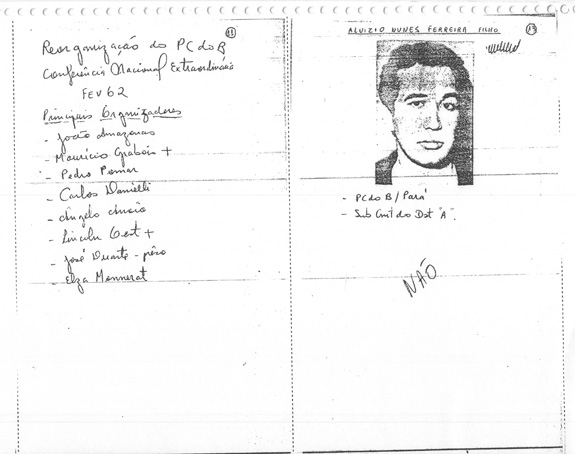 11
Reorganização do PC do B
Conferência Nacional Extraordinária
FEV 62
Principais Organizadores
- João Amazonas
- Maurício Grabois +
- Pedro Pomar
- Carlos Danielli
- Angelo Arroio
- Lincoln Oest +
- José Duarte - preso
- Elza Monnerat
ALUIZIO NUNES FERREIRA FILHO
- PC do B / Pará
- Sub Cmt do Dst "A".
NÃO